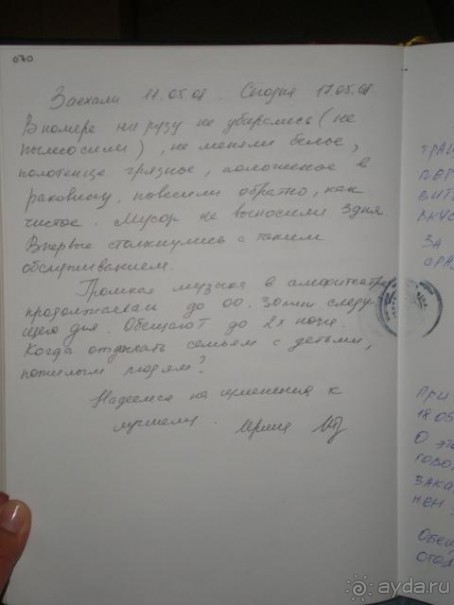 070
Заехали 11.05.08. Сегодня 17.05.08.
В номере ни разу не убирались (не
пылесосили), не меняли белье,
полотенце грязное, положенное в
раковину, повесили обратно, как
чистое. Мусор не выносили 3 дня
Впервые столкнулись с таким
обслуживанием.
Громкая музыка в амфитеатре
продолжается до 00.30 мин следу
щего дня. Обещают до 2х ночи.
Когда отдыхать семьям с детьми,
пожилым людям?
Надеемся на изменения к
лучшему.
ЗА
ПРИ
18.05
О ЭТО
ГОВО
ЗАКА
МЕН
ОБЕЩ
ayda.ru